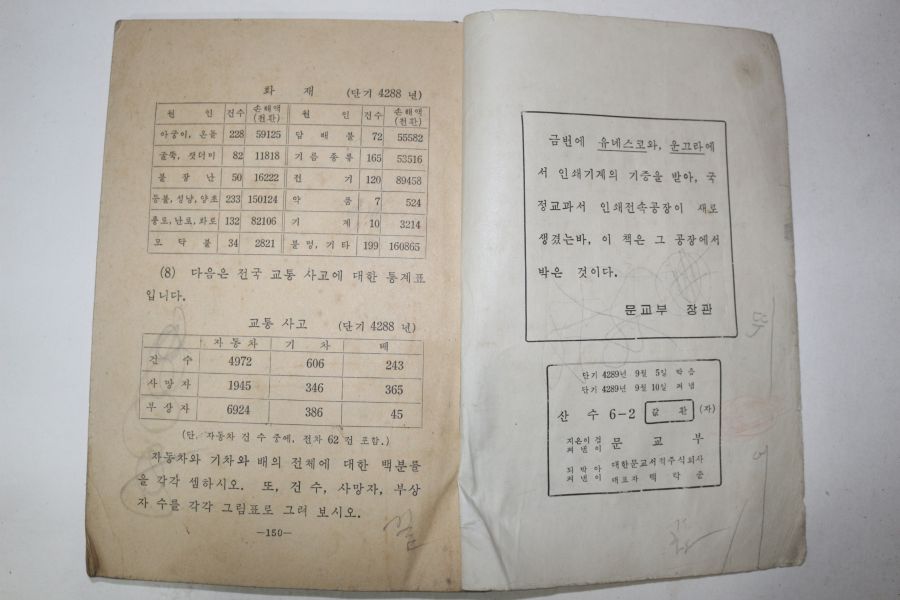 화 재 (단기 4288 년)
원 인 건수 손해액(천환) 원 인 건수 손해액(천환)
아궁이, 온돌 228 59125 담 배 불 72 55582
굴뚝, 잿더미 82 11818 기 름 종 류 165 53516
불 장 난 50 16222 전 기 120 89458
등불, 성냥, 양초 233 150124 약 품 7 524
풍로, 난로, 화로 132 82106 기 계 10 3214
모 닥 불 34 2821 불 명, 기 타 199 160865
(8) 다음은 전국 교통 사고에 대한 통계표
입니다.
교통 사고 (단기 4288 년)
자 동 차 기 차 배
건 수 4972 606 243
사 망 자 1945 346 365
부 상 자 6924 386 45
(단, 자동차 건 수 중에, 전차 62 건 포함.)
자동차와 기차와 배의 전체에 대한 백분률
을 각각 셈하시오. 또, 건 수, 사망자, 부상
자 수를 각각 그림표로 그려 보시오.
—150—
금번에 유네스코와, 운끄라에
서 인쇄기계의 기증을 받아, 국
정교과서 인쇄전속공장이 새로
생겼는바, 이 책은 그 공장에서
박은 것이다.
문교부 장관
단기 4289년 9월 5일 박음
단기 4289년 9월 10일 펴냄
산 수 6-2 값 환 (자)
지은이겸 펴낸이 문 교 부
되박아 펴낸이 대한문교서적주식회사
대표자 백 낙 준